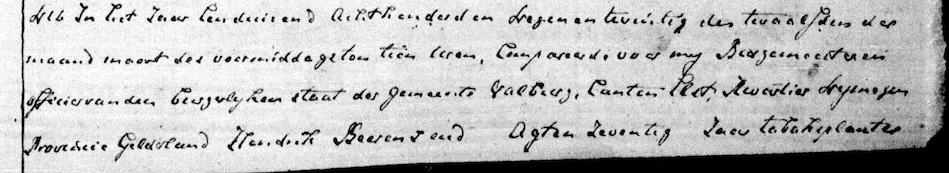 In het Jaar Eenduizend Achthonderd en Negenentwintig den twaalfden der
maand maart des voormiddags ten tien uren, Compareerde voor my Burgemeester en
officier van den burgerlyken staat der gemeente Valburg, Canton Elst, Kwartier Nymegen
Provincie Gelderland Hendrik Beerensend Agten Zeventig Jaar tabakplanter